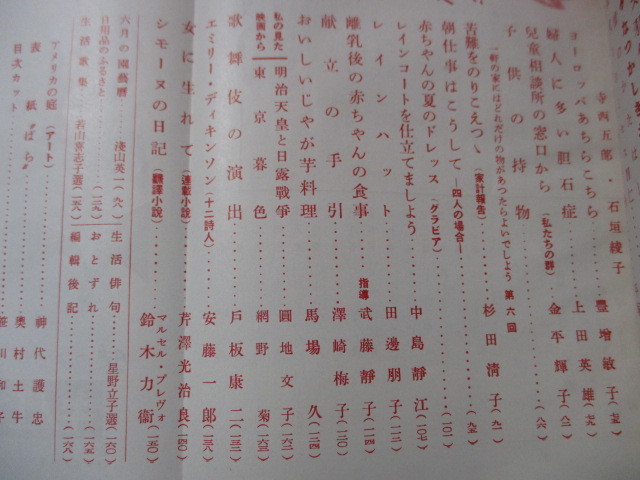 寺西五郎・石垣綾子
ヨーロッパあちらこちら……豊増敏子(七五)
婦人に多い胆石症……上田英雄(七九)
児童相談所の窓口から(私たちの群)……金平輝子(八二)
子供の持物……(八六)
一軒の家にはどれだけの物があつたらよいでしよう 第六回
苦難をのりこえつゝ(家計報告)……杉田清子(九一)
朝仕事はこうして―四人の場合―……(九五)
赤ちゃんの夏のドレッス(グラビア)……(一〇一)
レインコートを仕立てましよう……中島靜江(一〇七)
レインハット……田邊朋子(一一二)
離乳後の赤ちゃんの食事 指導 武藤靜子(一一四)
献立の手引……澤崎梅子(一二〇)
おいしいじゃが芋料理……馬場久(一二四)
私の見た映画から
明治天皇と日露戰爭……圓地文子(一六二)
東京暮色……網野菊(一六三)
歌舞伎の演出……戶板康二(一三五)
エミリー・ディキンソン(十二詩人)……安藤一郎(一三八)
女に生れて(連載小説)……芹澤光治良(一四〇)
シモーヌの日記(翻譯小説)……マルセル・プレヴォ 鈴木力衞(一五〇)
六月の園藝曆……淺山英一(九〇)
日用品のふるさと……(一三九)
生活歌集……若山喜志子選(一五八)
生活俳句……星野立子選(一六〇)
おとずれ……(一六五)
編輯後記……(一六八)
アメリカの庭(アート)
表紙“ばら”……神代護忠
目次カット……奥村土牛
笹川和子